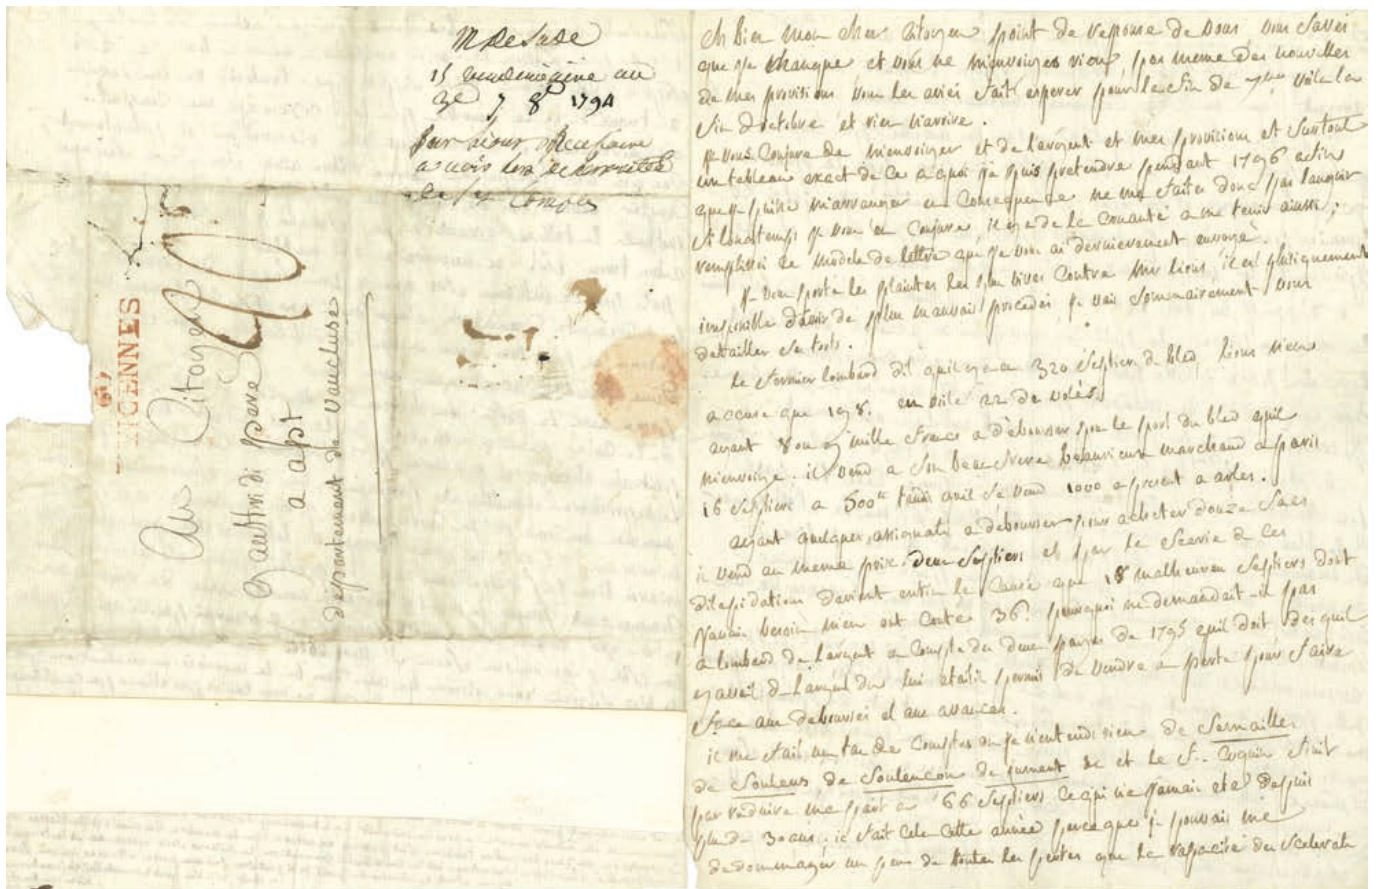 M De Sade
15 vendemiaire an
3e 7 8bre 1794
pour
a
de ses Comptes
VINCENNES
Au Citoyen
gaufridi pere
a apt
departement de Vaucluse
20
Eh bien mon cher citoyen point de reponse de vous, vous savés
que je manque et vous ne m'envoyes rien, pas meme des nouvelles
de mes provisions vous les aviés fait esperer pour la fin de 7bre voila la
fin d'octobre et rien n'arrive.
je vous conjure de m'envoyer et de l'argent et mes provisions et surtout
un tableau exact de ce a quoi je puis pretendre pendant 1796 afin
que je puisse m'arranger en consequence ne me faites donc pas languir
si longtemps je vous en conjure, il y a de la cruauté a me tenir ainsi;
remplissés le modele de lettre que je vous ai dernierement envoyé.
je vous porte les plaintes les plus vives contre Mr lions, il est phisiquement
impossible d'avoir de plus mauvais procedés je vais sommairement vous
detailler ses torts.
le fermier lombard dit qu'il y en a 320 septiers de bled, lions n'en
accuse que 198. en voila 22 de volés.
ayant 8 ou 9 mille francs a debourser pour le port du bled qu'il
m'envoye. il vend a son beau frere marchand a paris
16 septiers a 500 tandis qu'il se vend 1000 a present a arles.
ayant quelques assignats a debourser pour acheter douze sacs
il vend au meme prix deux septiers et par la serie de ces
dilapidations devient enfin la cause que 18 malheureux septiers dont
j'avais besoin m'en ont couté 36. pourquoi ne demandait-il pas
a lombard de l'argent a compte des deux payes de 1795 qu'il doit des qu'il
y avait de l'argent du lui etait-il permis de vendre a perte pour faire
face aux deboursés et aux avances.
il me fait un tas de comptes ou je n'entends rien de semailles
de soulens, de soulencon de jument &c et le f.. coquin finit
par reduire ma part a 66 septiers ce qui n'a jamais eté depuis
plus de 30 ans. il fait cela cette année parce que je pouvais me
dedommager un peu de toutes les pertes que la rapacité des scelerats